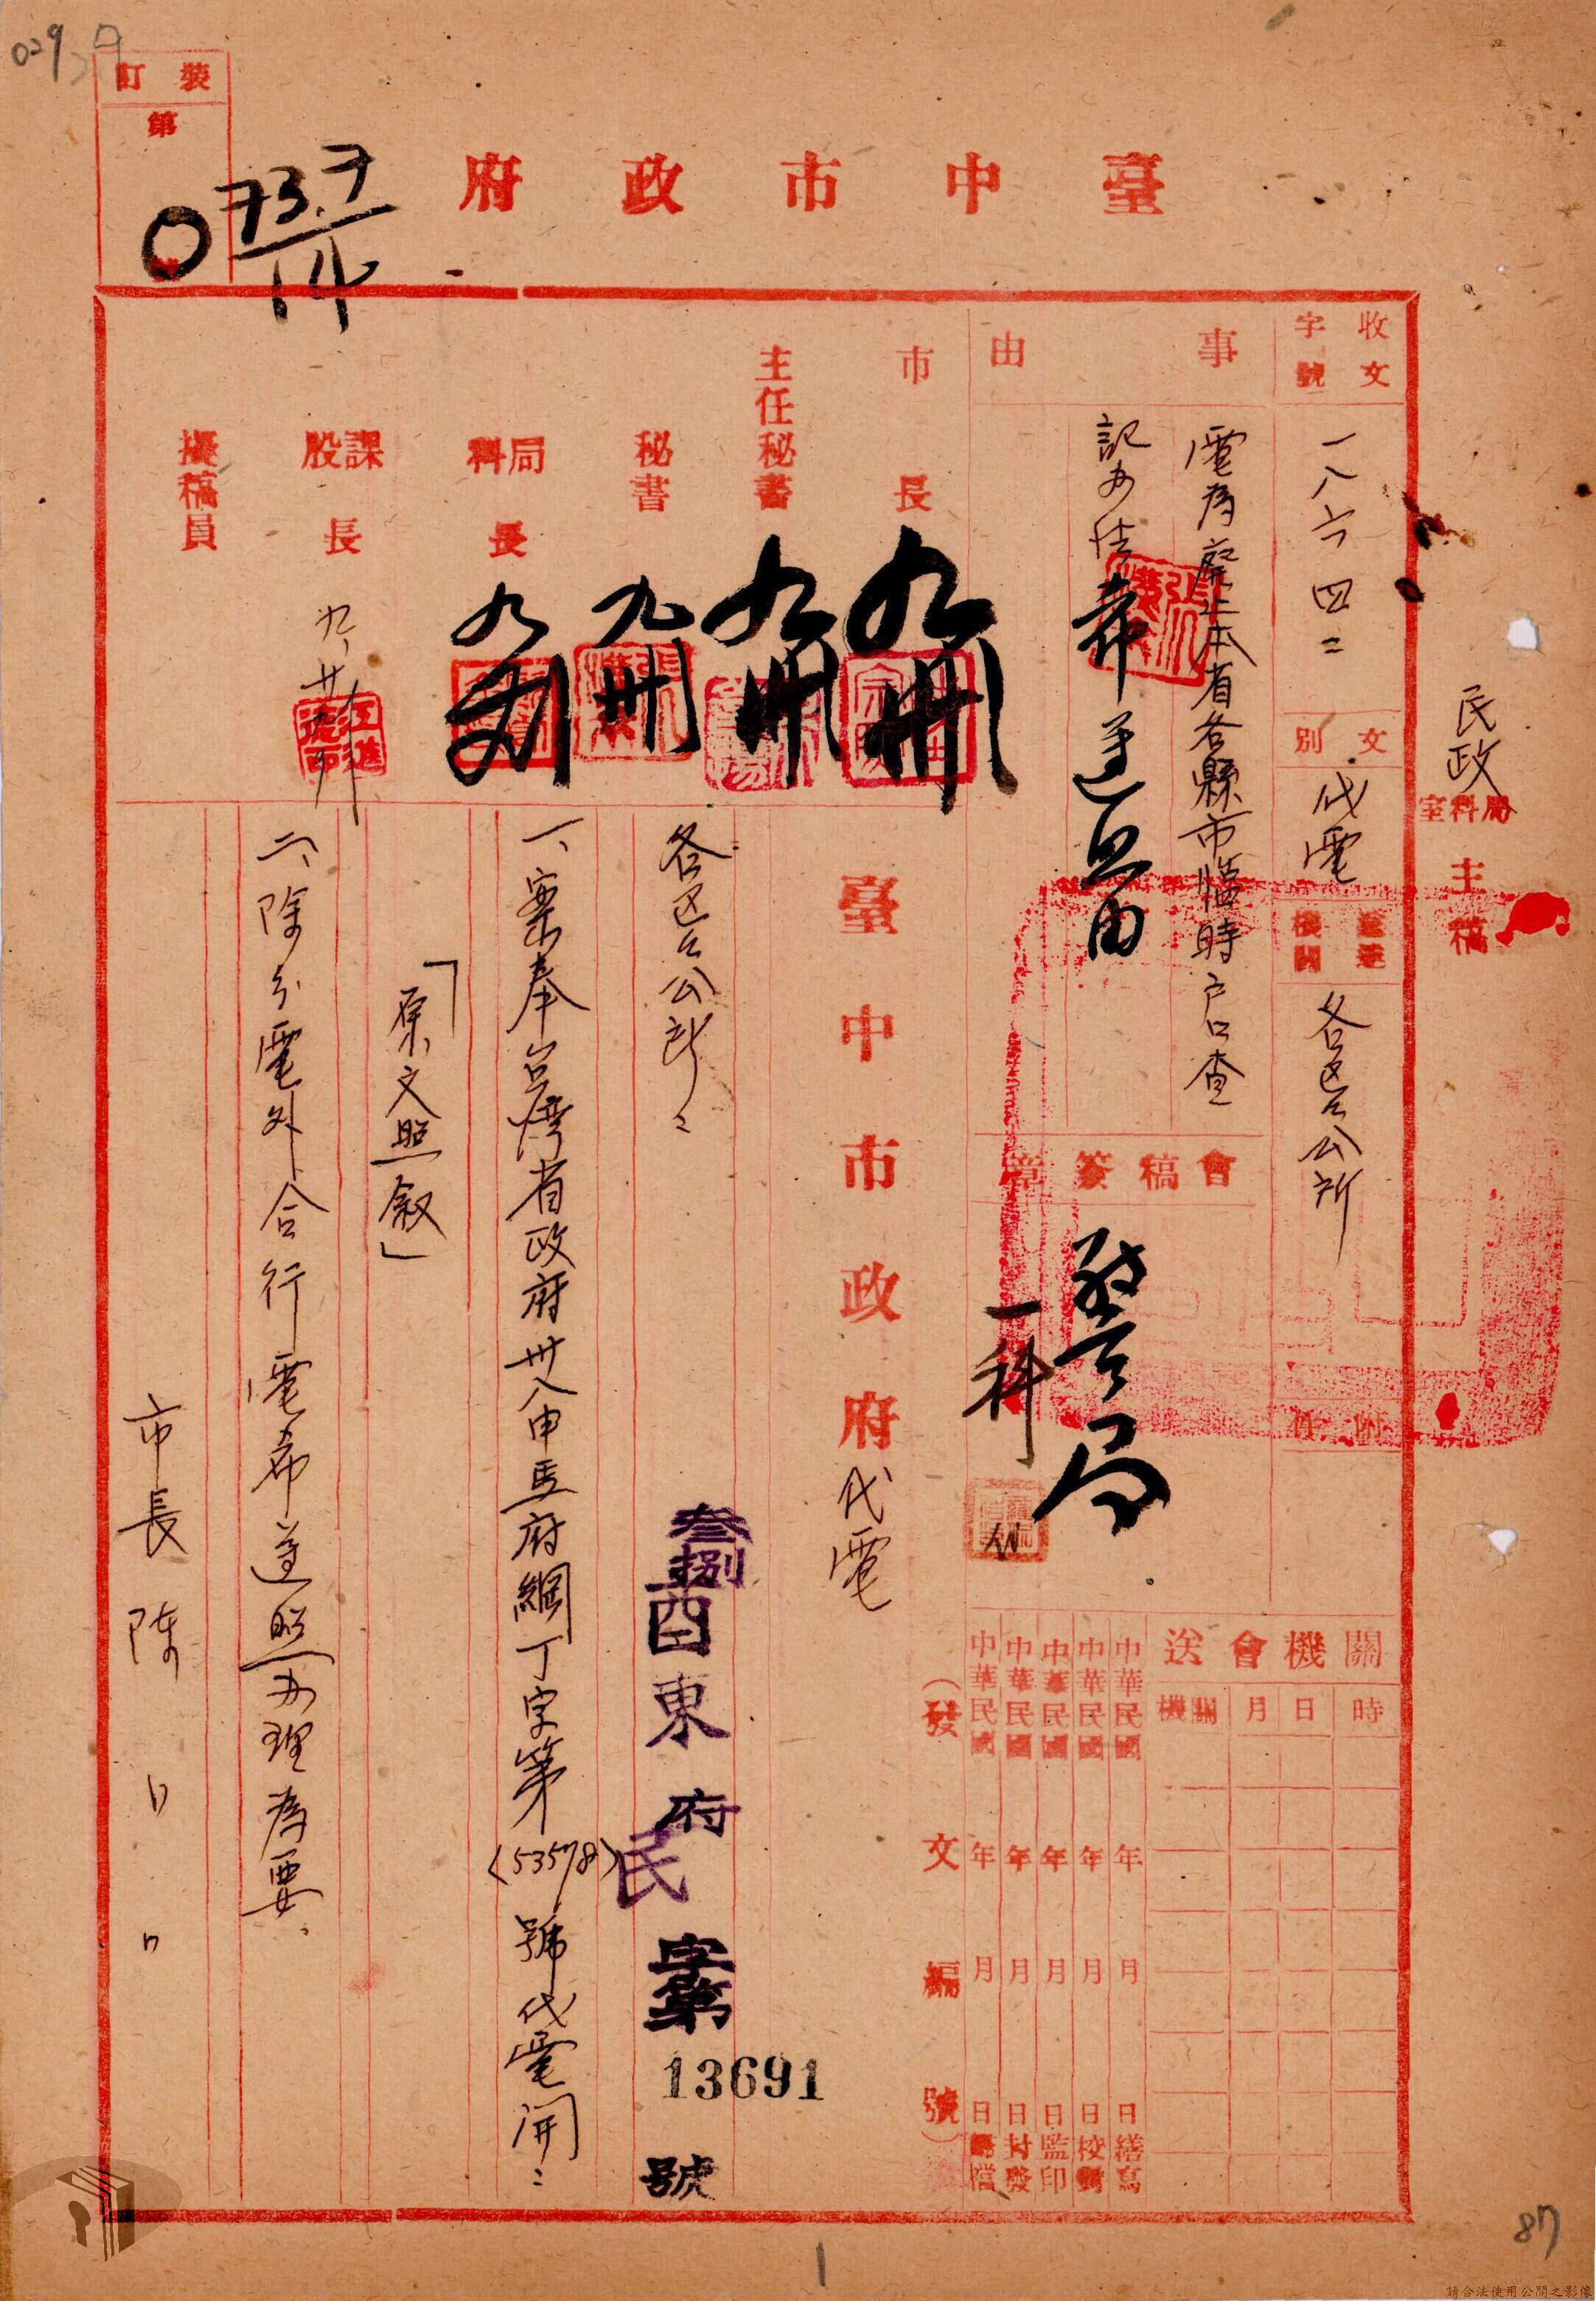 裝訂
第
073.7
14
臺中市政府
民政
局科室主稿
收文字號
一八六四二
文別
代電
送達機關
各區區公所
附件
事由
電為廢止本省各縣市臨時戶口查
記办法希遵照由
會稿簽章
警局
一科
關機會送
時
日
月
機關
中華民國 年 月 日繕寫
中華民國 年 月 日校對
中華民國 年 月 日監印
中華民國 年 月 日封發
中華民國 年 月 日歸檔
(發文編號)
市長
主任秘書
秘書
局科長
課股長
擬稿員
臺中市政府代電
叁捌酉東府民字第13691號
各區區公所:
一、案奉台灣省政府卅八申馬府綱丁字第(53578)號代電開:
「原文照敘」
二、除分電外合行電希遵照办理為要
市長陳
1
87
請合法使用公開之影像